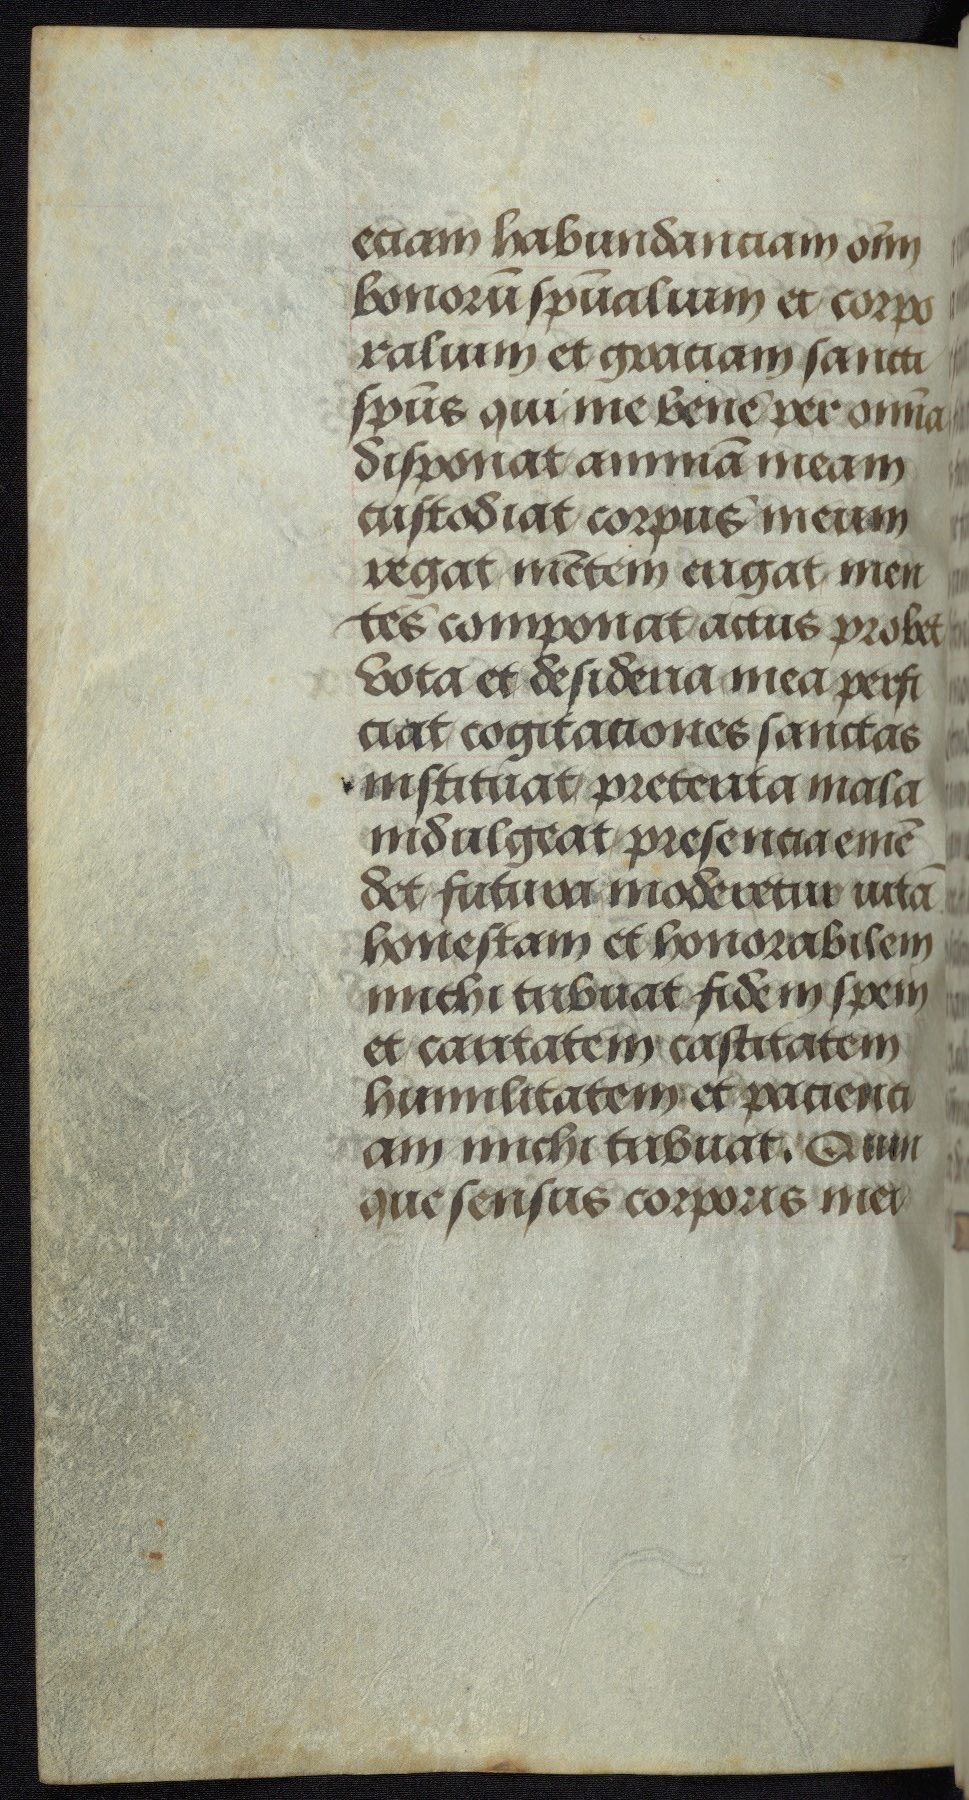 eciam habundanciam om̄
bonorū spūalium et corpo
ralium et graciam sancti
spūs qui me bene per om̄ia
disponat animā meam
custodiat corpus meum
regat mētem erigat men
tes componat actus probet
vota et desideria mea perfi
ciat cogitationes sanctas
instituat preterita mala
indulgeat presencia emē
det futura moderetur vitā
honestam et honorabilem
michi tribuat fidem spem
et caritatem castitatem
humilitatem et pacienci
am michi tribuat. Quin
que sensus corporis mei